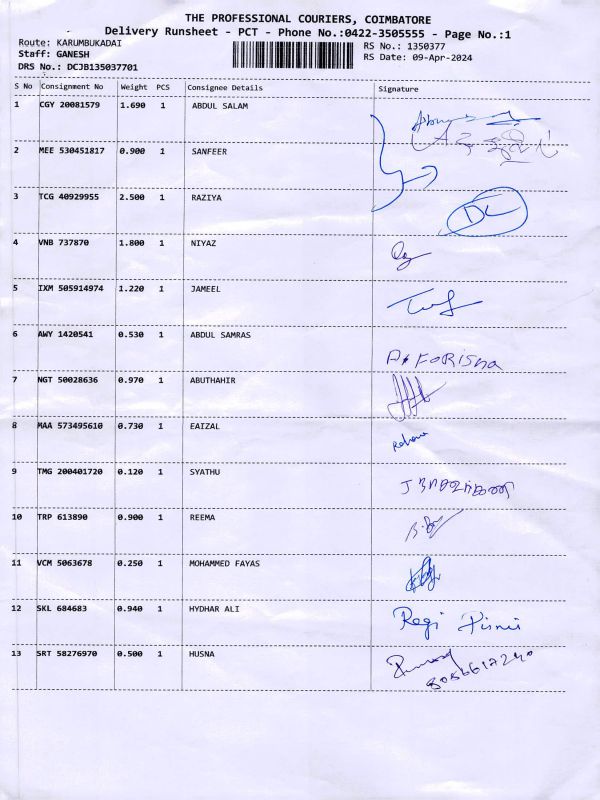 THE PROFESSIONAL COURIERS, COIMBATORE
Delivery Runsheet - PCT - Phone No.:0422-3505555 - Page No.:1
Route: KARUMBUKADAI
Staff: GANESH
DRS No.: DCJB135037701
RS No.: 1350377
RS Date: 09-Apr-2024
S No Consignment No Weight PCS Consignee Details Signature
1 CGY 20081579 1.690 1 ABDUL SALAM
2 MEE 530451817 0.900 1 SANFEER
3 TCG 40929955 2.500 1 RAZIYA
4 VNB 737870 1.800 1 NIYAZ
5 IXM 505914974 1.220 1 JAMEEL
6 AWY 1420541 0.530 1 ABDUL SAMRAS
7 NGT 50028636 0.970 1 ABUTHAHIR
8 MAA 573495610 0.730 1 EAIZAL
9 TMG 200401720 0.120 1 SYATHU
10 TRP 613890 0.900 1 REEMA
11 VCM 5063678 0.250 1 MOHAMMED FAYAS
12 SKL 684683 0.940 1 HYDHAR ALI Regi
13 SRT 58276970 0.500 1 HUSNA